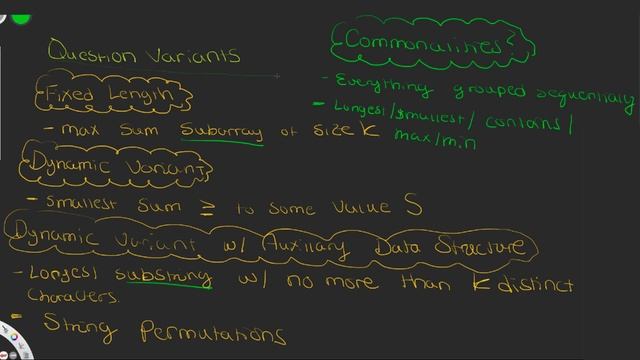 Question Variants
Fixed Length
- max sum subarray of size K
Dynamic Variant
- smallest sum ≥ to some value S
Dynamic Variant w/ Auxilary Data Structure
- Longest substring w/ no more than K distinct
characters.
- String Permutations
Commonalities?
- Everything grouped sequentially
- Longest/smallest/contains/
max/min